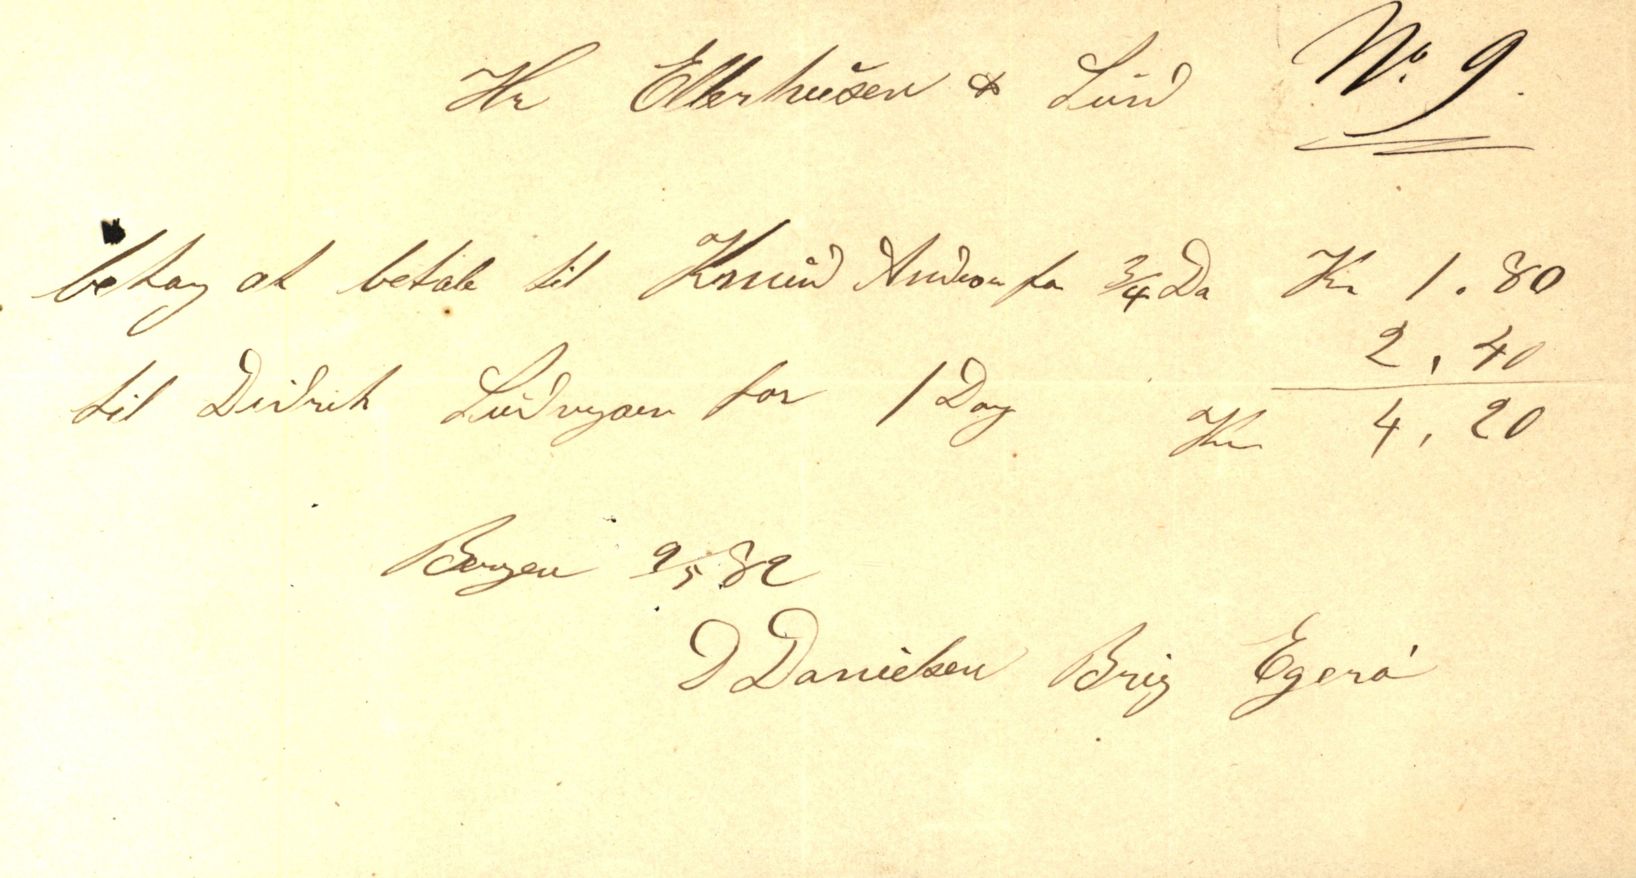 Hr Ellerhusen & Lund No. 9.
behag at betale til Knud Andrson for 3/4 Da Kr 1.80
2,40
til Didrik Ludvigsen for 1 Dag Kr 4,20
Bergen 9/5 82
D Danielsen Brig Egerö